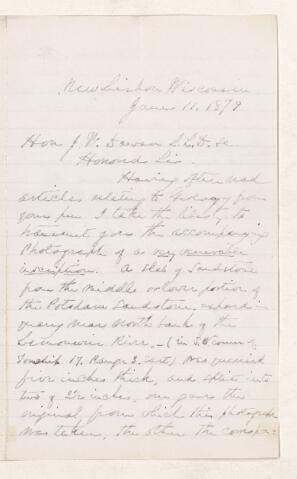 New Lisbon Wisconsin
June 11. 1879
Hon J. W. Dawson L.L.D. &c
Honored Sir.
Having often read
articles relating to Geology from
your pen I take the liberty to
transmit you the accompanying
Photograph of a
inscription. A Slab of Sandstone
from the middle or lower portion of
the Potsdam Sandstone, exposed in
quarry near North bank of the
Lemonweir River, - (in S.E. Corner of
Township 17. Range 3. East) was
five inches thick, and splits into
two of 2½ inches, one gave the
original, from which this photograph
was taken, the other the